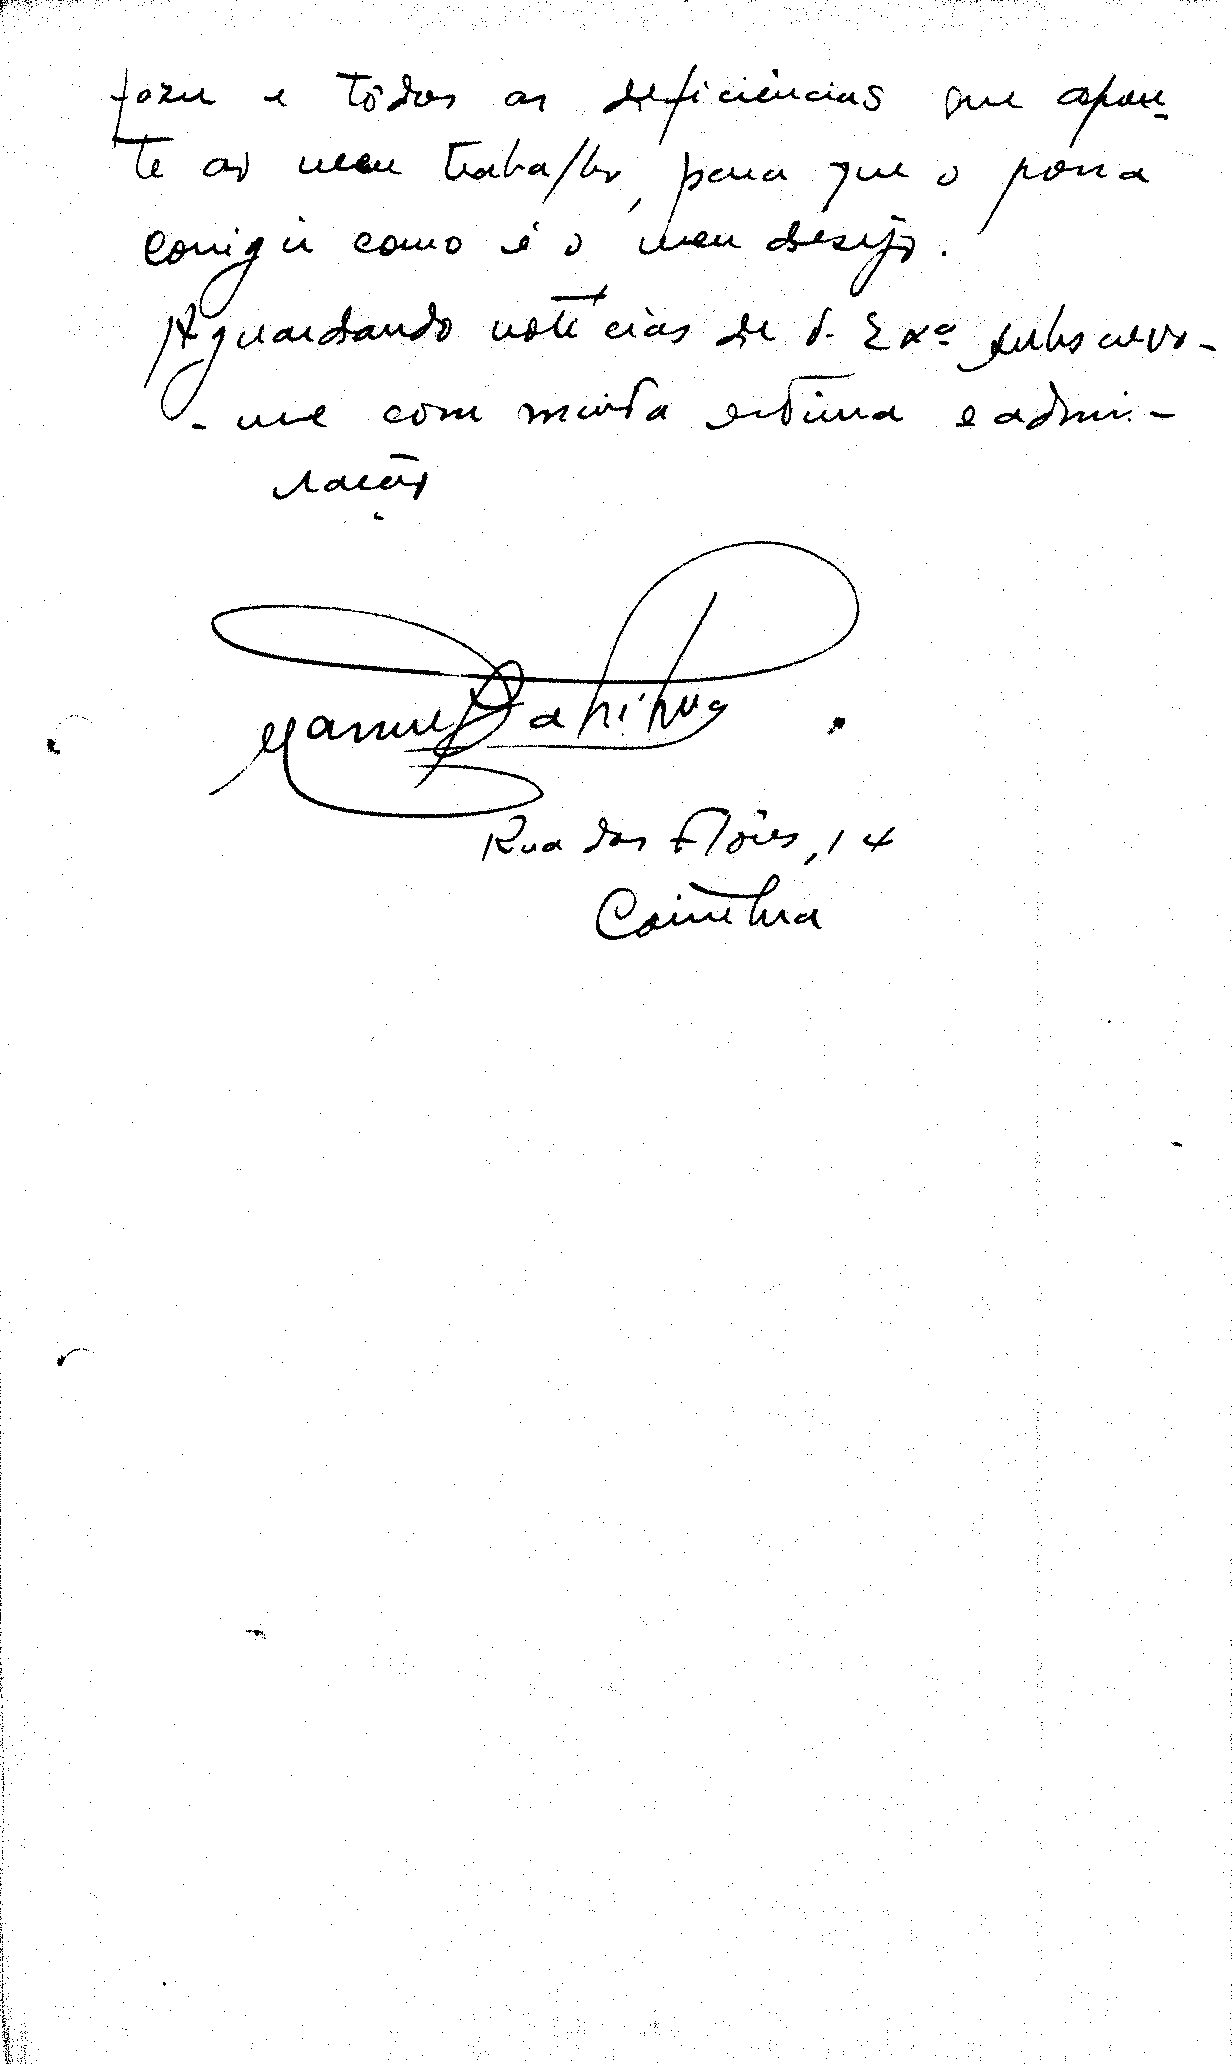 fazer e tôdas as deficiências que apon-
te ao meu trabalho, para que o possa
corrigir como é o meu desejo.
Aguardando notícias de V. Exª subscrevo-
-me com muita estima e admi-
ração
Manuel
Rua das Flôres, 14
Coimbra